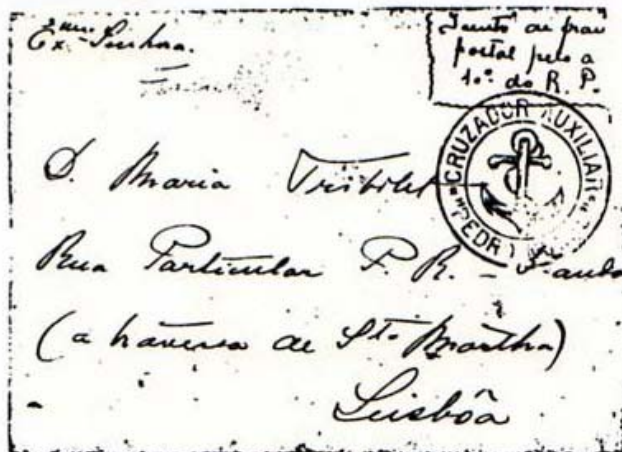 Exma. Senhora.
Isento de
portal pelo a
10º do R. P.
CRUZADOR AUXILIAR
"PEDRO
D. Maria
Rua Particular P. R. -
(a travessa de Sta Martha)
Lisbôa